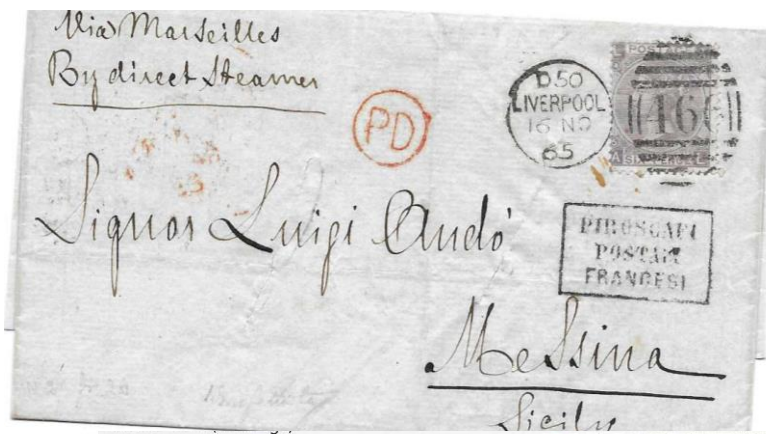 Via Marseilles
By direct Steamer
PD
D50
LIVERPOOL
16 NO
65
POSTAGE
466
SIX PENCE
A L
Signor Luigi Andó
PIROSCAFI
POSTALI
FRANCESI
Messina
Sicily